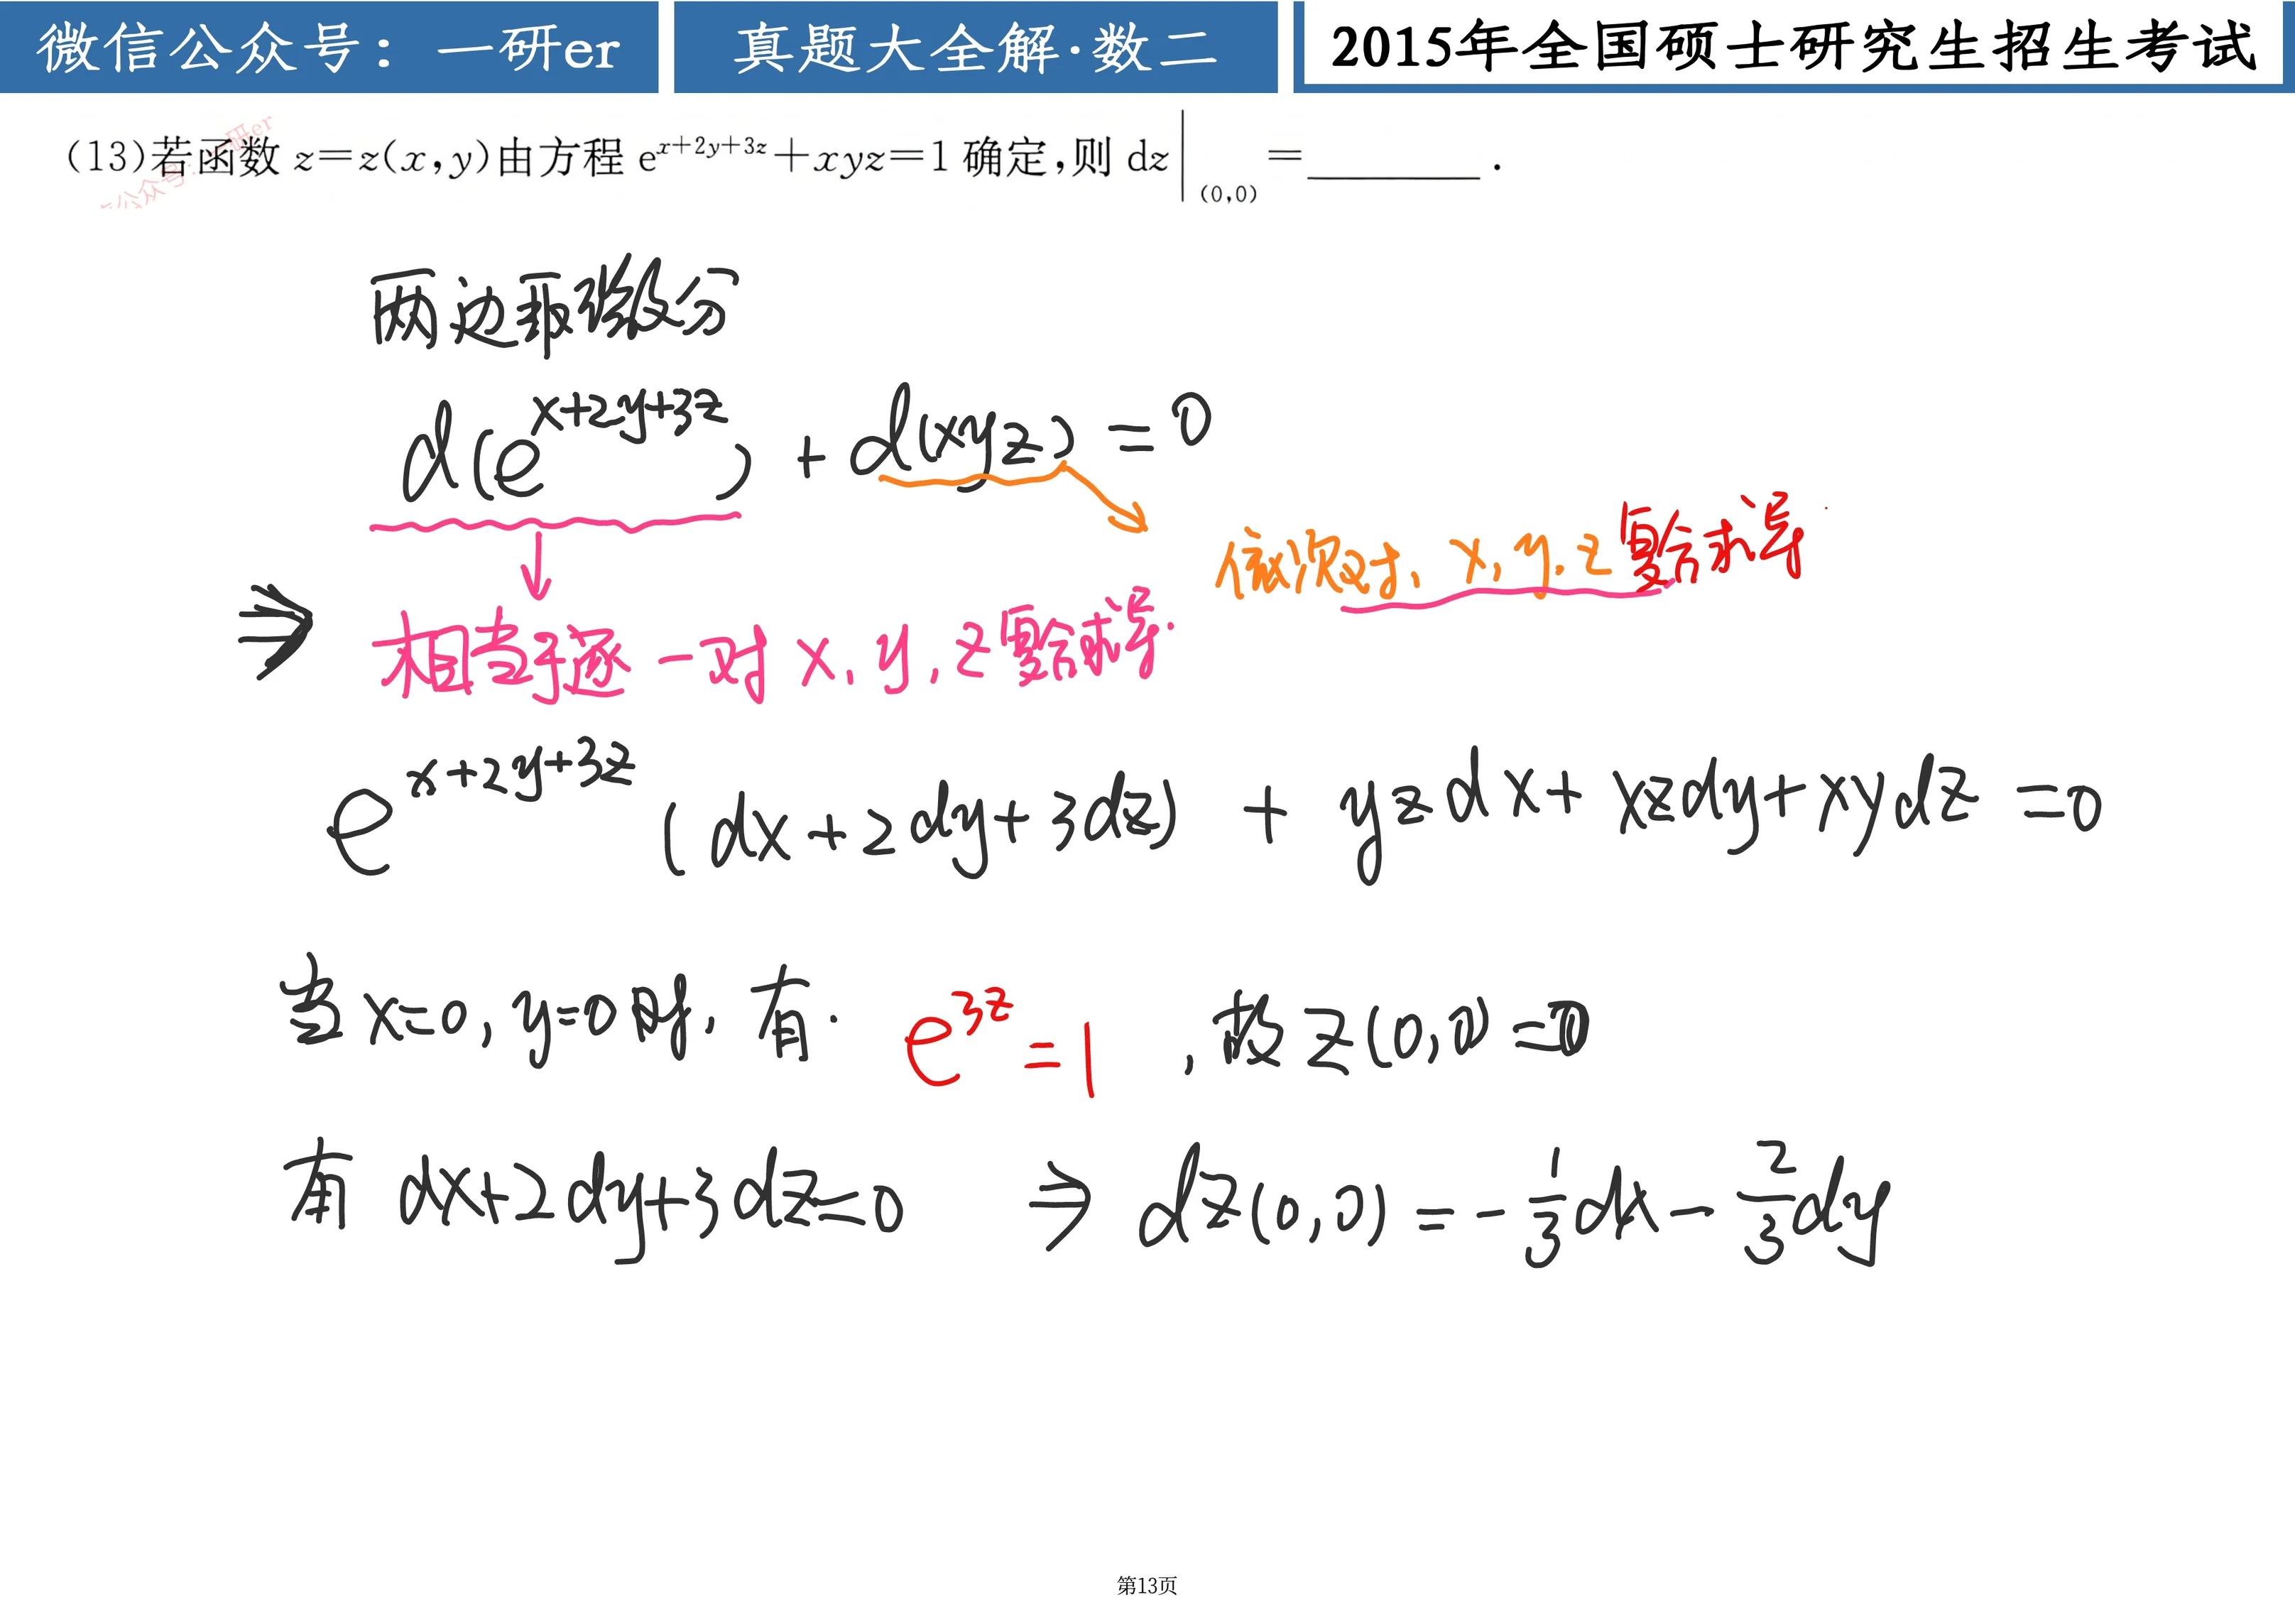 微信公众号：一研er 真题大全解·数二 2015年全国硕士研究生招生考试
(13)若函数 z=z(x,y)由方程 e^{x+2y+3z}+xyz=1 确定,则 dz|_{(0,0)} =________.
两边取微分
d(e^{x+2y+3z}) + d(xyz) = 0
依次对, x, y, z 复合求导.
⇒ 相当于逐一对 x, y, z 复合求导.
e^{x+2y+3z} (dx+2dy+3dz) + yzdx+xzdy+xydz=0
当x=0, y=0时, 有. e^{3z}=1 , 故z(0,0)=0
有 dx+2dy+3dz=0 ⇒ dz(0,0)=-\frac{1}{3}dx-\frac{2}{3}dy
第13页